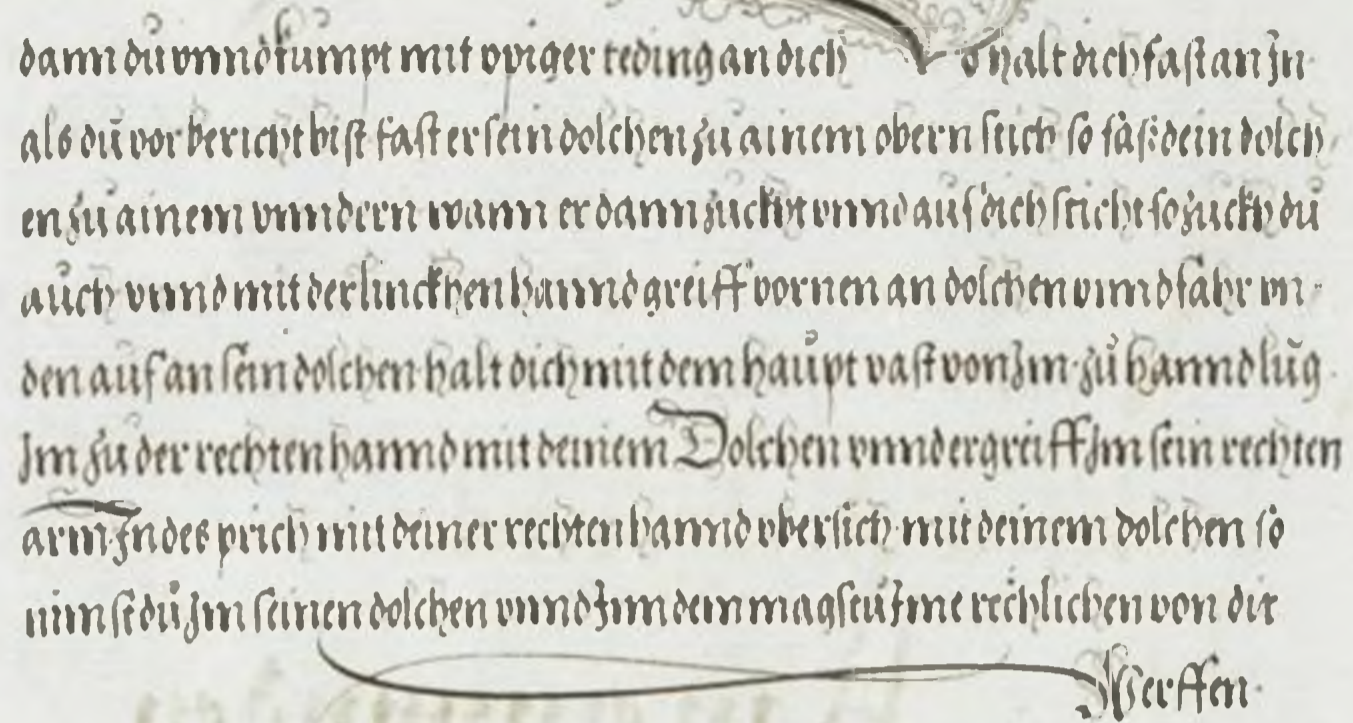 dann dű vnnd kumpt mit vpiger teding an dich So halt dich fast an Jn
als dű vor bericht bist fast er sein dolchen zű ainem obern stich so fäs: dein dolch
en zű ainem vnndern wann er dann zuckht vnnd auf dich sticht so zuckh dű
aűch vnnd mit der linckhen hannd greiff vornen an dolchen vnnd fahr vn-
den auf an sein dolchen halt dich mit dem haűpt vast von Jm. zű hannd lűg
Jm zű der rechten hannd mit deinem Dolchen vnndergreiff Jm sein rechten
arm Jndes prich mit deiner rechten hannd vbersich mit deinem dolchen so
nimst dű Jm seinen dolchen vnnd Jnndem magstű Jme rechlichen von dir
Werffen.